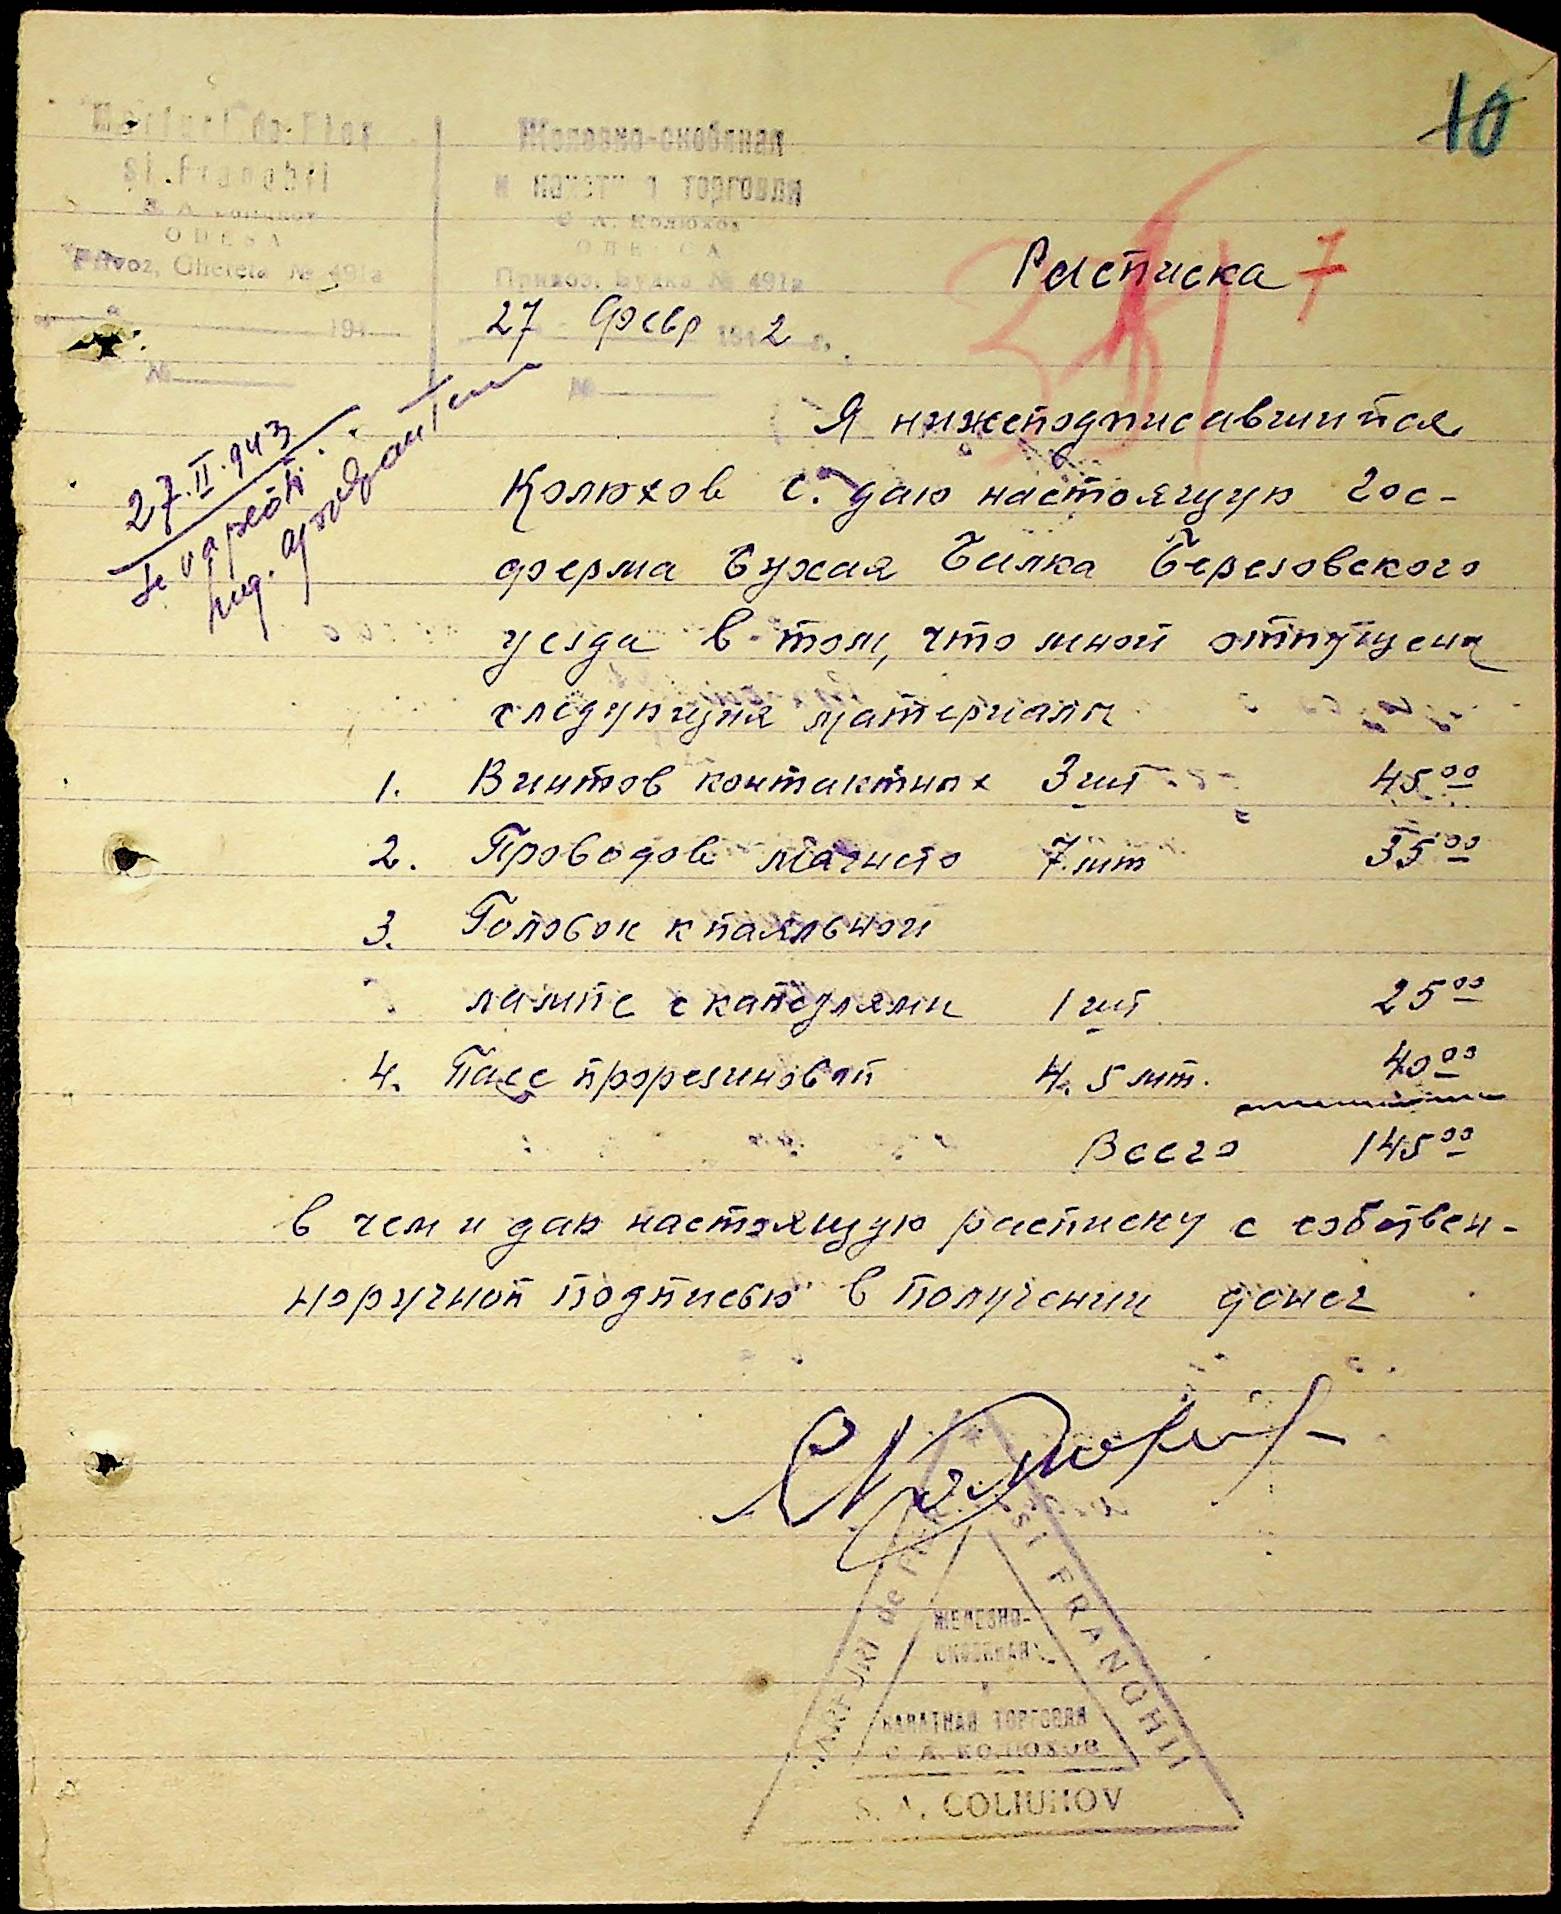 10
Marfuri de Fier
si Franghii
S. A.
ODESA
Privoz, Ghereta № 491a
194
№
Железно-скобяная
и канатная торговля
С. А. Колюхов
ОДЕССА
Привоз, Будка № 491а
27 Февр 194 2 г.
№
Расписка 7
27.II.943
Я нижеподписавшийся
Колюхов С. даю настоящую Гос-
ферма Сухая Балка Березовского
уезда в том, что мной отпущена
следующия материалы
1. Винтов контактных 3 шт 45 00
2. Проводов магнето 7 мт 35 00
3. Головок к паяльной
лампе с капсулями 1 шт 25 00
4. Пасс прорезиновой 4.5 мт. 40 00
Всего 145 00
в чем и даю настоящую расписку с собствен-
норучной подписью в получении денег
MARFURI de FIER SI FRANGHII
ЖЕЛЕЗНО-
СКОБЯНАЯ
и
КАНАТНАЯ ТОРГОВЛЯ
С. А. КОЛЮХОВ
S. A. COLIUHOV